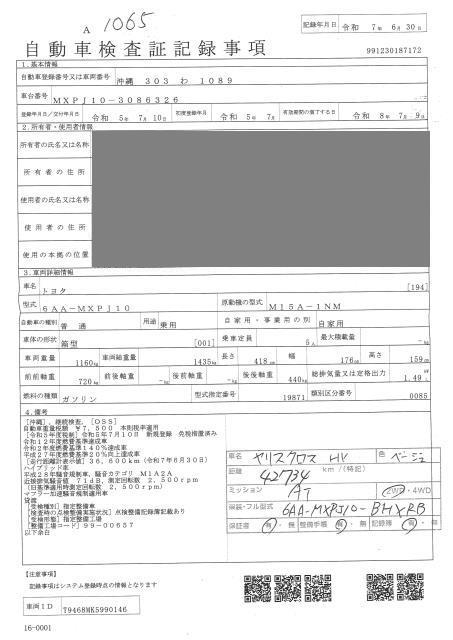 A 1065
記録年月日 令和 7年 6月 30日
自動車検査証記録事項
991230187172
1.基本情報
自動車登録番号又は車両番号 沖縄 303 わ 1089
車台番号 MXPJ10-3086326
登録年月日/交付年月日 令和 5年 7月 10日 初度登録年月 令和 5年 7月 有効期間の満了する日 令和 8年 7月 9日
2.所有者・使用者情報
所有者の氏名又は名称
所有者の住所
使用者の氏名又は名称
使用者の住所
使用の本拠の位置
3.車両詳細情報
車名 トヨタ [194]
型式 6AA-MXPJ10 原動機の型式 M15A-1NM
自動車の種別 普通 用途 乗用 自家用・事業用の別 自家用
車体の形状 箱型 [001] 乗車定員 5人 最大積載量 -kg
車両重量 1160kg 車両総重量 1435kg 長さ 418cm 幅 176cm 高さ 159cm
前前軸重 720kg 前後軸重 -kg 後前軸重 -kg 後後軸重 440kg 総排気量又は定格出力 1.49L
燃料の種類 ガソリン 型式指定番号 19871 類別区分番号 0085
4.備考
[沖縄],継続検査,[OSS]
自動車重量税額 ¥7,500 本則税率適用
[令和5年度税制]令和5年7月10日 新規登録 免税措置済み
令和12年度燃費基準達成車
令和2年度燃費基準140%達成車
平成27年度燃費基準20%向上達成車
[走行距離計表示値]36,600km(令和7年6月30日)
ハイブリッド車
平成28年騒音規制車、騒音カテゴリ M1A2A
近接排気騒音値 71dB,測定回転数 2,500rpm
(旧基準適用時測定回転数 2,500rpm)
マフラー加速騒音規制適用車
貨渡
[受検種別]指定整備車
[検査時の点検整備実施状況]点検整備記録簿記載あり
[受検形態]指定整備工場
[整備工場コード]99-00657
以下余白
車名 ヤリスクロス HV 色 ベージュ
距離 42734 km/(特記)
ミッション AT 2WD・4WD
保装・フル型式 6AA-MXPJ10-BHXRB
保証書 有・無 整備手帳 有・無 記録簿 有・無
【注意事項】
記録事項はシステム登録時点の情報となります
車両ID T9468MK5990146
16-0001